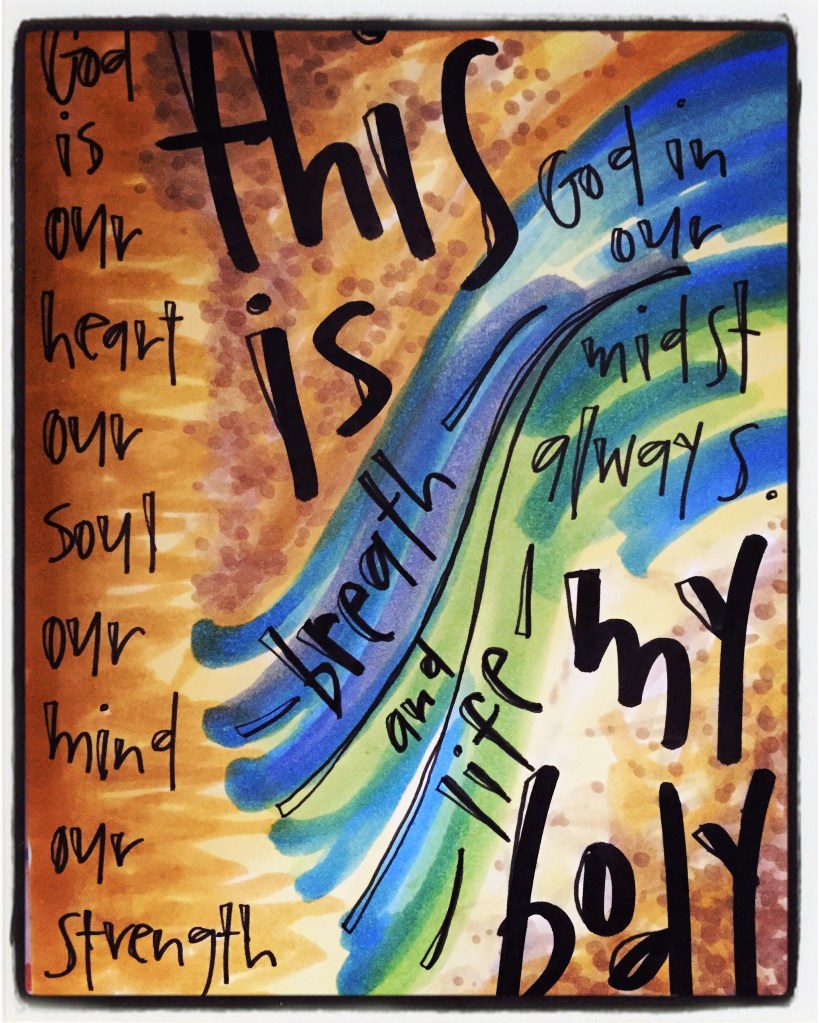 God
is
our
heart
our
soul
our
mind
our
strength
this
is
breath
and
life
God in
our
midst
always.
my
body